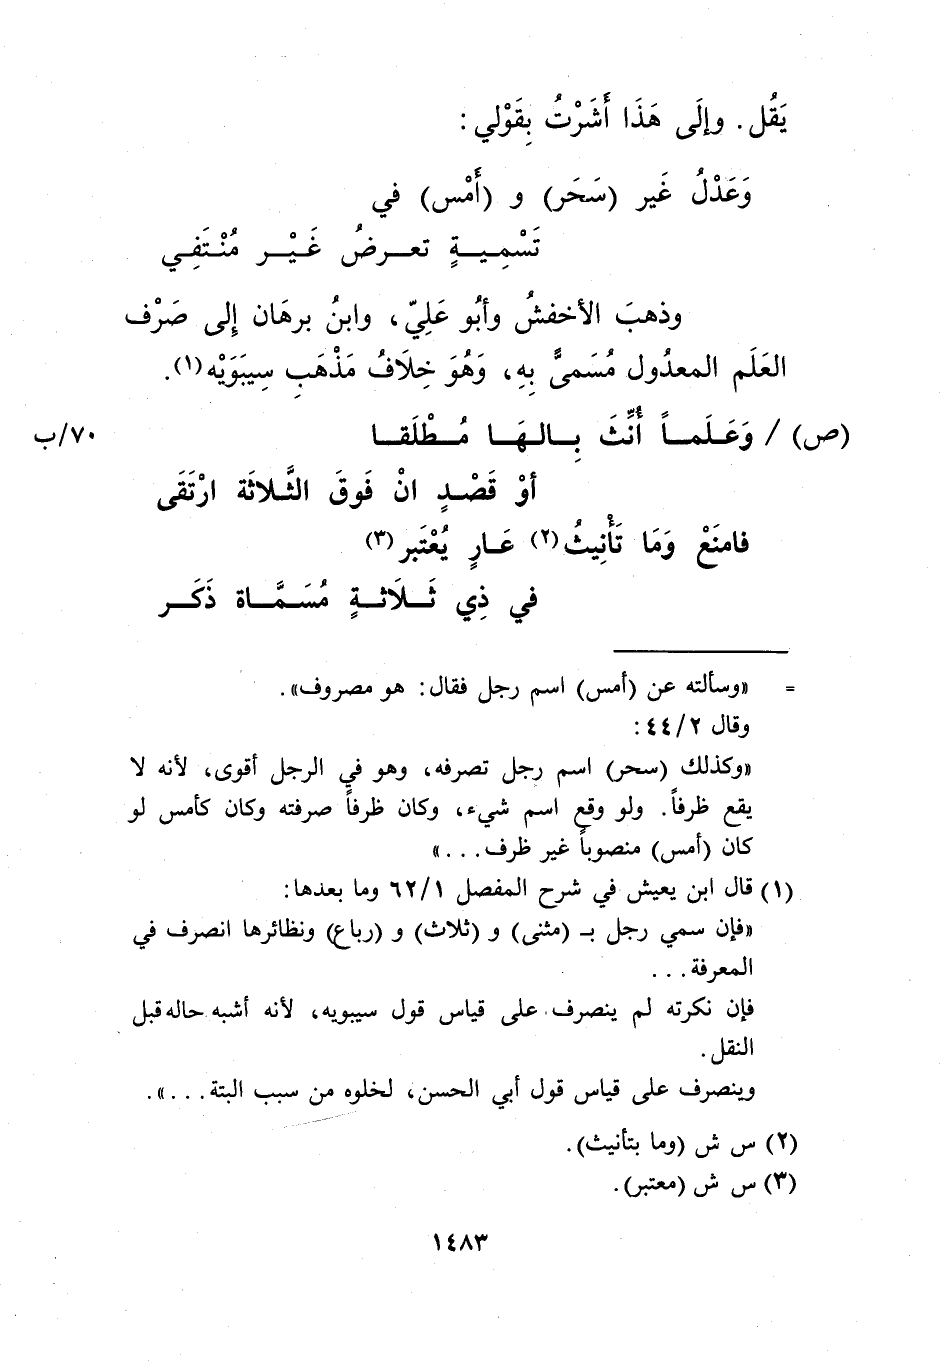 يَقُل. وإلَى هَذَا أَشَرْتُ بِقَوْلي:
وَعَدْلُ غَير (سَحَر) و (أَمْس) في
تَسْمِيةٍ تعرضُ غَيْر مُنْتَفِي
وذهبَ الأخفشُ وأبُو عَليّ، وابنُ برهَان إلى صَرْف
العَلَم المعدُول مُسَمىًّ بِهِ، وَهُوَ خِلَافُ مَذْهَبِ سِيبَوَيْه(١).
(ص) / وَعَلَماً أُنِّثَ بِالهَا مُطْلَقا ٧٠/ب
أوْ قَصْدٍ انْ فَوقَ الثَّلاثَة ارْتَقَى
فامنَعْ وَمَا تَأْنِيثُ(٢) عَارٍ يُعْتَبر(٣)
في ذِي ثَلَاثةٍ مُسَمَّاة ذَكَر
= «وسألته عن (أمس) اسم رجل فقال: هو مصروف».
وقال ٤٤/٢:
«وكذلك (سحر) اسم رجل تصرفه، وهو في الرجل أقوى، لأنه لا
يقع ظرفاً. ولو وقع اسم شيء، وكان ظرفاً صرفته وكان كأمس لو
كان (أمس) منصوباً غير ظرف...»
(١) قال ابن يعيش في شرح المفصل ٦٢/١ وما بعدها:
«فإن سمي رجل بـ (مثنى) و (ثلاث) و (رباع) ونظائرها انصرف في
المعرفة...
فإن نكرته لم ينصرف على قياس قول سيبويه، لأنه أشبه حاله قبل
النقل.
وينصرف على قياس قول أبي الحسن، لخلوه من سبب البتة...».
(٢) س ش (وما بتأنيث).
(٣) س ش (معتبر).
١٤٨٣